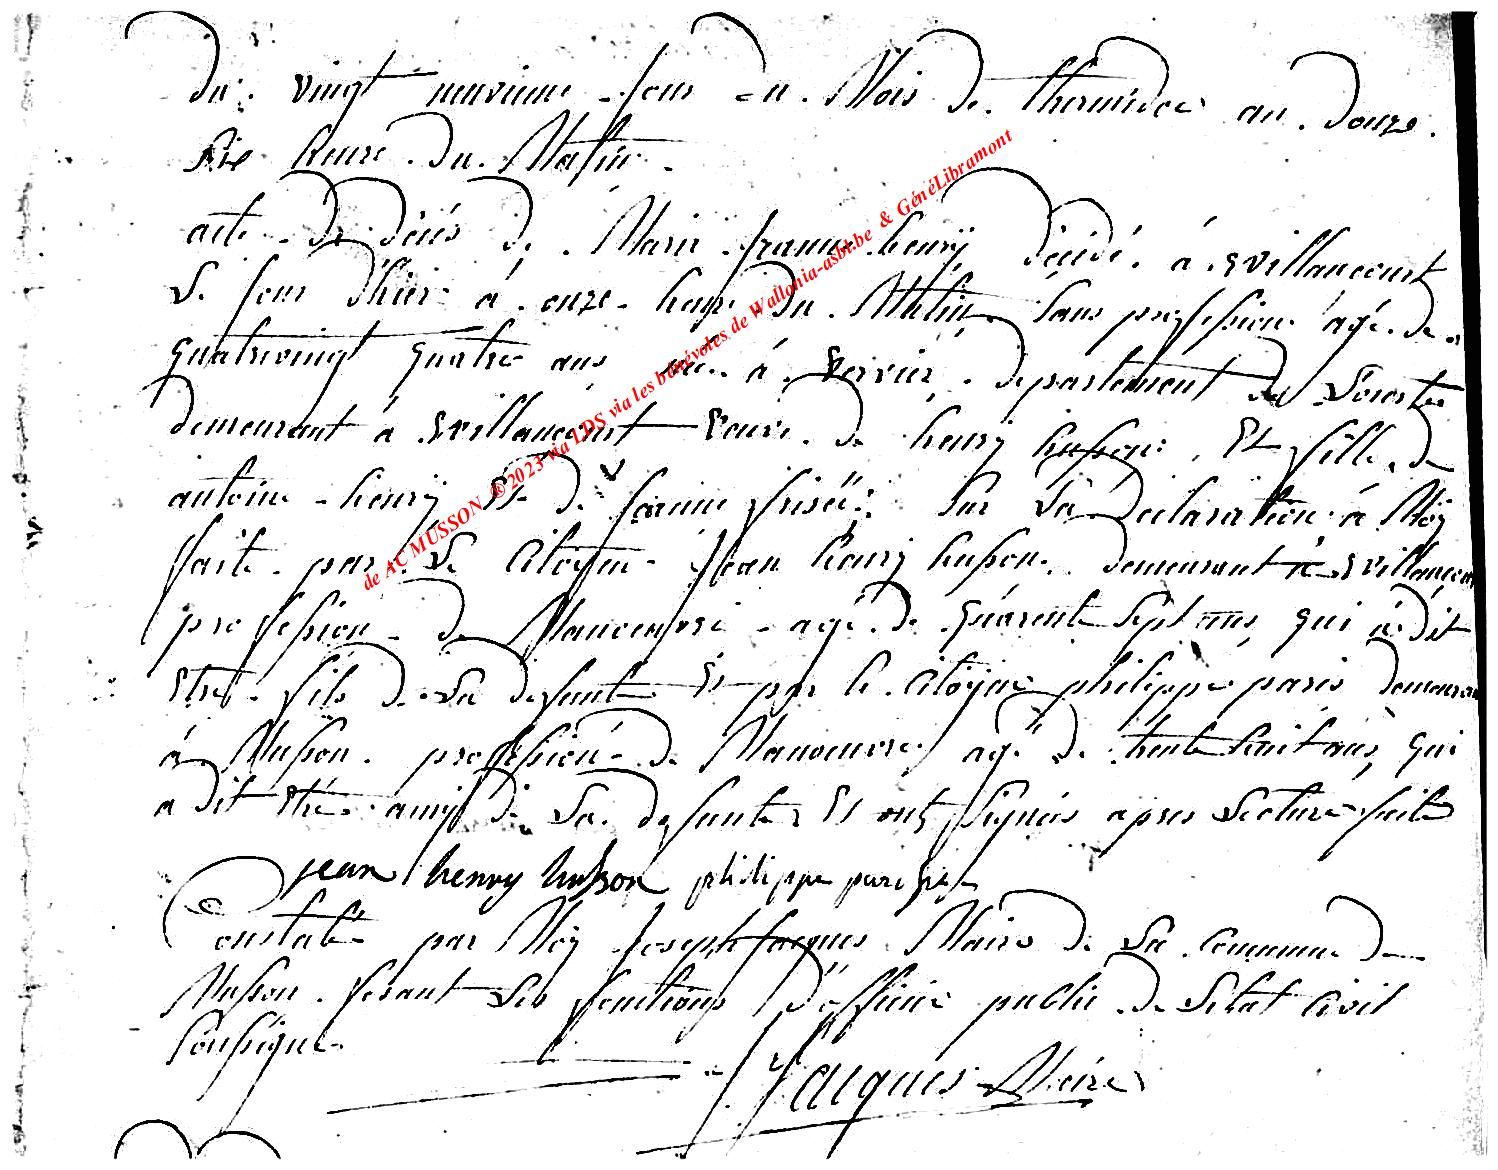 du. vingt neuvieme jour du. Mois de. thermidor an. douze.
Six heure. du. Matin.
acte. de décés de. Marie jeanne henrÿ décédé. à. Willancourt
Le jour d'hier à. onze. heure du. Matin Sans profession agé. de.
quatrevingt quatre ans née. à. Virriér. departement des Forests
demeurant à Willancourt veuve. de henrj husson. Et fille de
antoine henrÿ Et de jeanne frisëe: Sur La Declaration à Moÿ
faite par. Le Citoÿen jean henrj husson. demeurant à Willancourt
profession de Manoeuvre agé. de quarente Sept ans, qui à dit
Etre. fils de La defunte Et par le. Citoÿen philippe paris demeurant
à Musson. profession de Manoeuvre agé de trente huit ans, qui
a dit Etre. amis de La. defunte Et ont Signés apres Lecture faite
jean henry husson philippe paris
Constaté par Moÿ joseph jacques Maire de La commune de
Musson. fesant Les fonctions d'officier public de Letat Civil
Soussigné.
J jacques Maire
de AC MUSSON ®2023 via LDS via les bénévoles de Wallonia-asbl.be & GénéLibramont